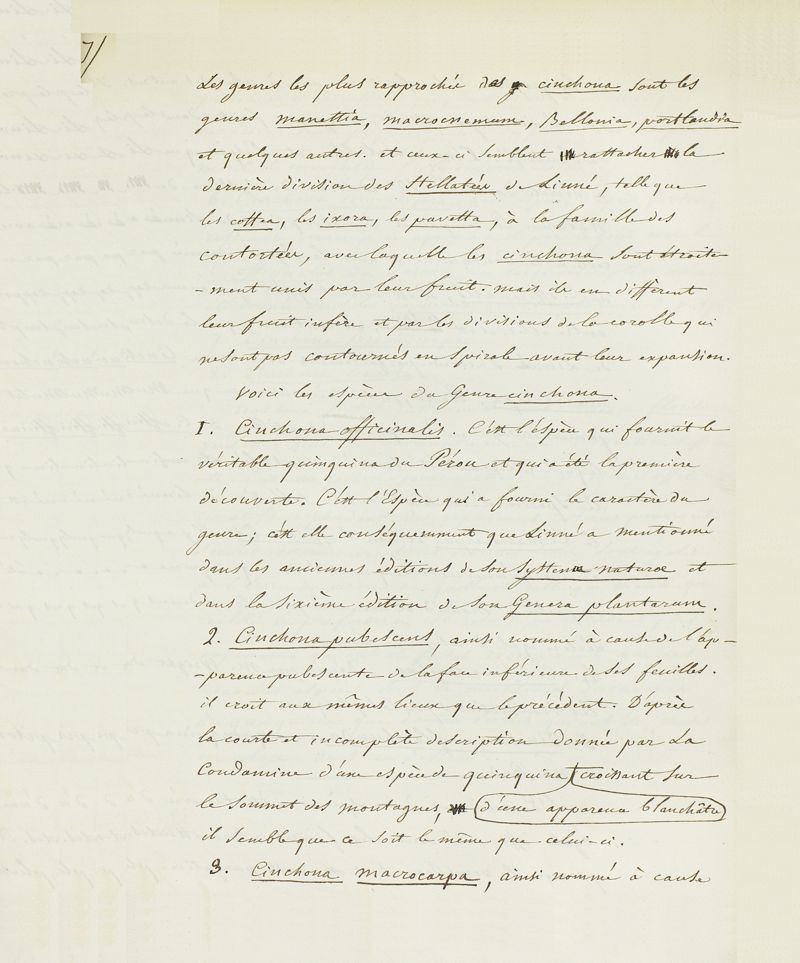 7/
Les genres les plus rapprochés des cinchona sont les
genres manettia, macrocnemum, Bellonia, portlandia
et quelques autres. et ceux-ci semblent rattacher la
dernière division des Stellatées de Linné, telle que
les coffea, les ixora, les pavetta, à la famille des
contortées, avec laquelle les cinchona sont étroite
-ment unis par leur fruit. mais ils en diffèrent
leur fruit infère et par les divisions de la corolle qui
ne sont pas contournés en spirale avant leur expansion.
Voici les espèces du Genre cinchona.
1. Cinchona officinalis. C'est l'espèce qui fournit le
véritable quinquina du Pérou et qui a été la première
découverte. C'est l'Espèce qui a fourni le caractère du
genre; c'est elle conséquemment que Linné a mentionné
dans les anciennes éditions de son Systema naturae et
dans la sixième édition de son Genera plantarum.
2. Cinchona pubescens, ainsi nommé à cause de l'ap-
-parence pubescente de la face inférieure de ses feuilles.
il croit aux mêmes lieux que le précédent. D'après
la courte et incomplète description donnée par La
Condamine d'une espèce de quinquina croissant sur
le sommet des montagnes, d'une apparence blanchâtre
il semble que ce soit le même que celui-ci.
3. Cinchona macrocarpa, ainsi nommé à cause